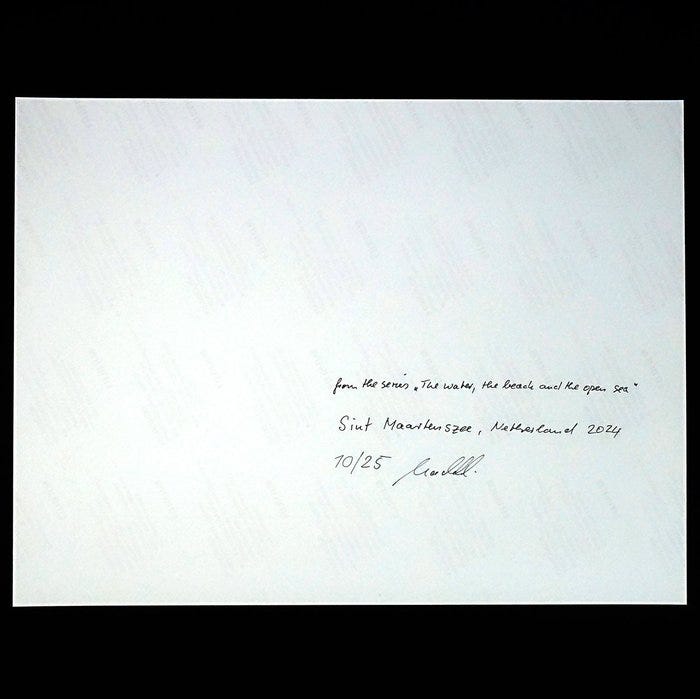 from the series „The water, the beach and the open sea"
Sint Maartenszee, Netherland 2024
10/25